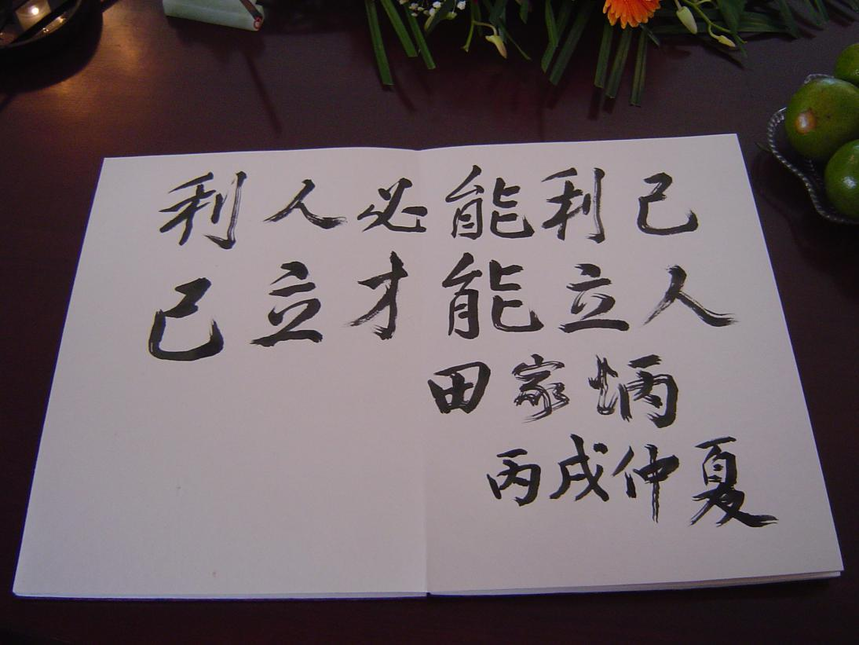 利人必能利己
己立才能立人
田家炳
丙戌仲夏